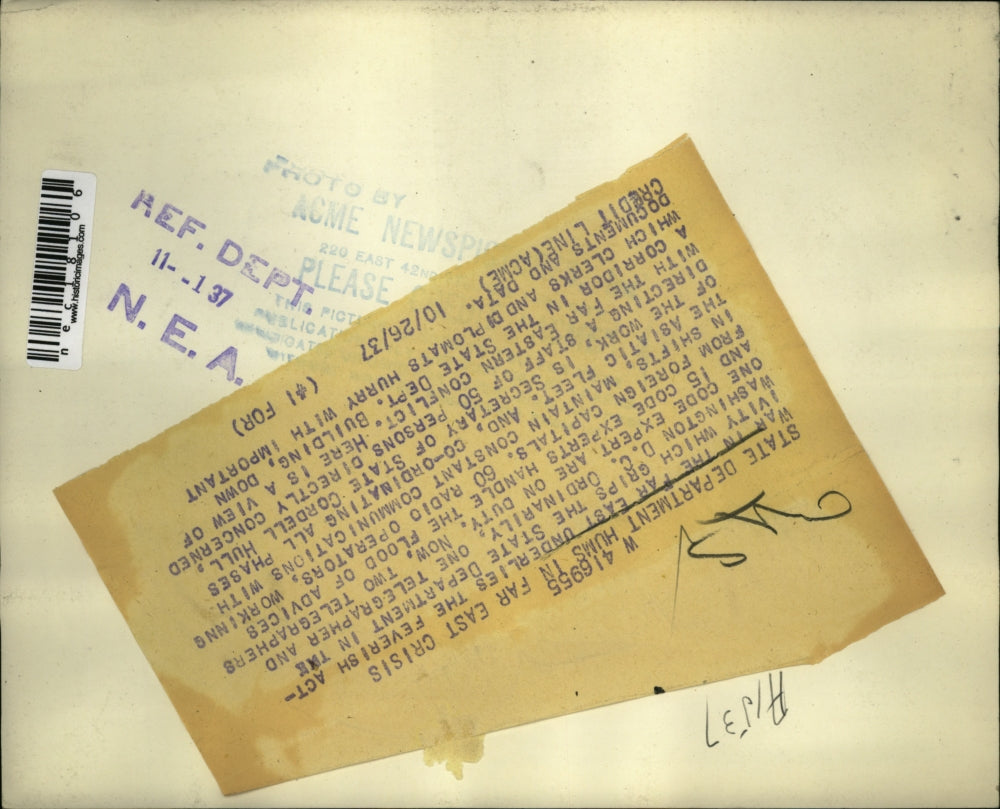 nec18106
www.historicimages.com
REF. DEPT.
11--1 37
N. E. A.
PHOTO BY
ACME NEWSPIC
220 EAST 42ND
PLEASE
THIS PICT
W 416955
STATE DEPARTMENT HUMS IN FAR EAST CRISIS
WAR IN THE FAR EAST UNDERLIES THE FEVERISH ACT-
IVITY IN WHICH GRIPS THE STATE DEPARTMENT IN THE
WASHINGTON D.C. ORDINARILY, ONE TELEGRAPHER AND
ONE CODE EXPERT, ARE ON DUTY. NOW, TWO TELEGRAPHERS
AND 15 CODE EXPERTS HANDLE THE FLOOD OF ADVICES
FROM FOREIGN CAPITALS. 60 RADIO OPERATORS, WORKINNG
IN SHIFTS, MAINTAIN CONSTANT COMMUNICATIONS WITH
THE ASIATIC FLEET. AND, CO-ORDINATING ALL PHASES
OF THE WORK, IS SECRETARY OF STATE CORDELL HULL,
DIRECTING A STAFF OF 50 PERSONS DIRECTLY CONCERNED
WITH THE FAR EASTERN CONFLICT. HERE IS A VIEW OF
A CORRIDOR IN THE STATE DEPT. BUILDING, DOWN
WHICH CLERKS AND DIPLOMATS HURRY WITH IMPORTANT
DOCUMENTS AND DATA.
CREDIT LINE (ACME) 10/26/37 (#1 FOR)